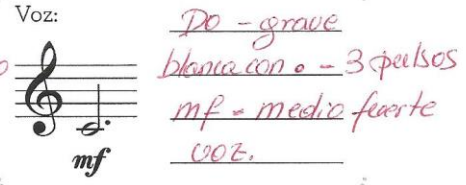 Voz:
Do - grave
blanca con • - 3 pulsos
mf - medio fuerte
voz.
mf